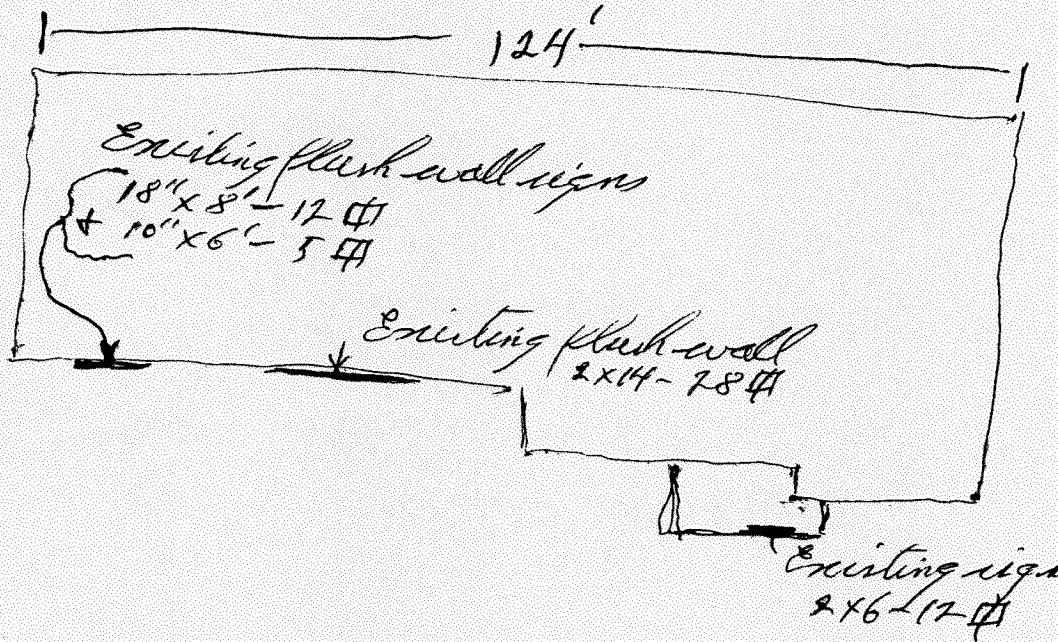 124'
Existing flush wall signs
18" x 8' - 12 ⌗
+ 10" x 6' - 5 ⌗
Existing flush wall
2x14 - 28 ⌗
Existing sign
2x6 - 12 ⌗